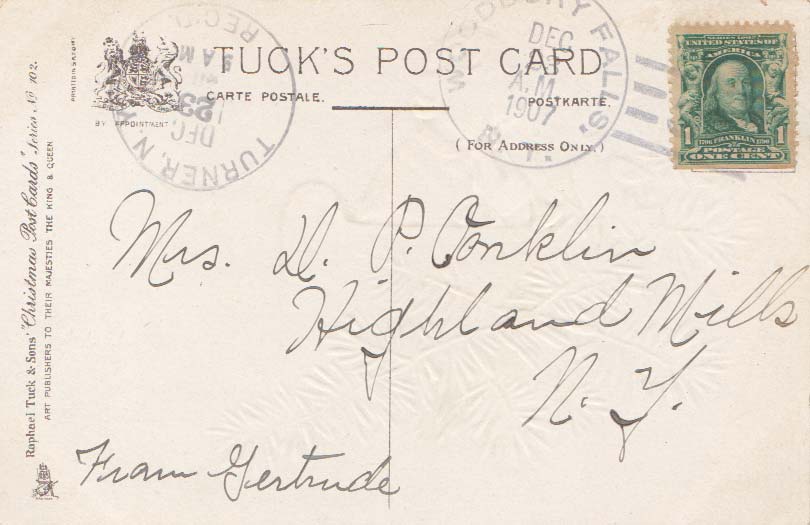 TUCK'S POST CARD
CARTE POSTALE.
POSTKARTE.
(FOR ADDRESS ONLY.)
BY APPOINTMENT
Raphael Tuck & Sons' "Christmas Post Cards" Series No 102.
ART PUBLISHERS TO THEIR MAJESTIES THE KING & QUEEN
TURNER, N.
REC'D
9 AM
23
DEC
WOODBURY FALLS,
N.Y.
DEC
A.M
1907
SERIES 1902
UNITED STATES OF
AMERICA
1 1706 FRANKLIN 1790 1
POSTAGE
ONE CENT
Mrs. D. P. Conklin
Highland Mills
N. Y.
From Gertrude